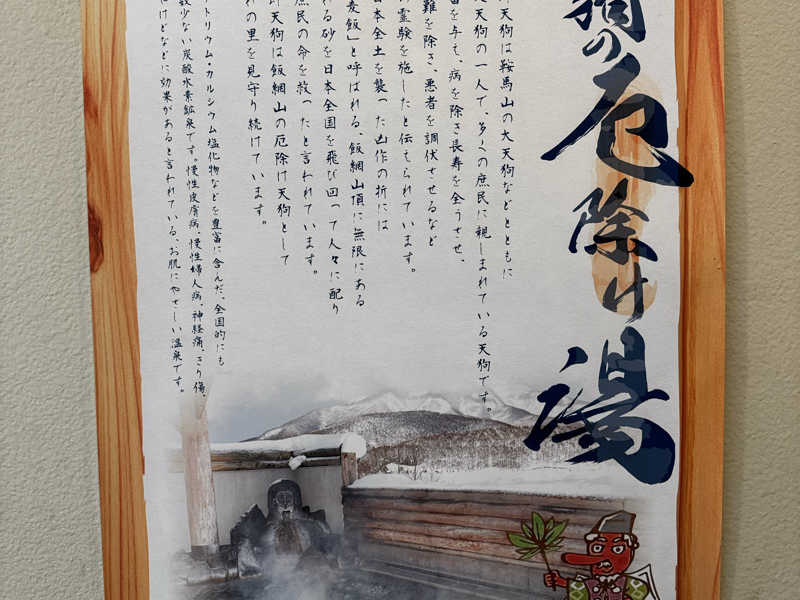 狗の厄除け湯
天狗は鞍馬山の大天狗などとともに
天狗の一人で、多くの庶民に親しまれている天狗です。
を与え、病を除き長寿を全うさせ、
難を除き、悪者を調伏させるなど
霊験を施したと伝えられています。
日本全土を襲った凶作の折には
麦飯」と呼ばれる、飯綱山頂に無限にある
る砂を日本全国を飛び回って人々に配り
庶民の命を救ったと言われています。
天狗は飯綱山の厄除け天狗として
の里を見守り続けています。
トリウム・カルシウム塩化物などを豊富に含んだ、全国的にも
数少ない炭酸水素鉱泉です。慢性皮膚病、慢性婦人病、神経痛、きり傷、
けどなどに効果があると言われている、お肌にやさしい温泉です。